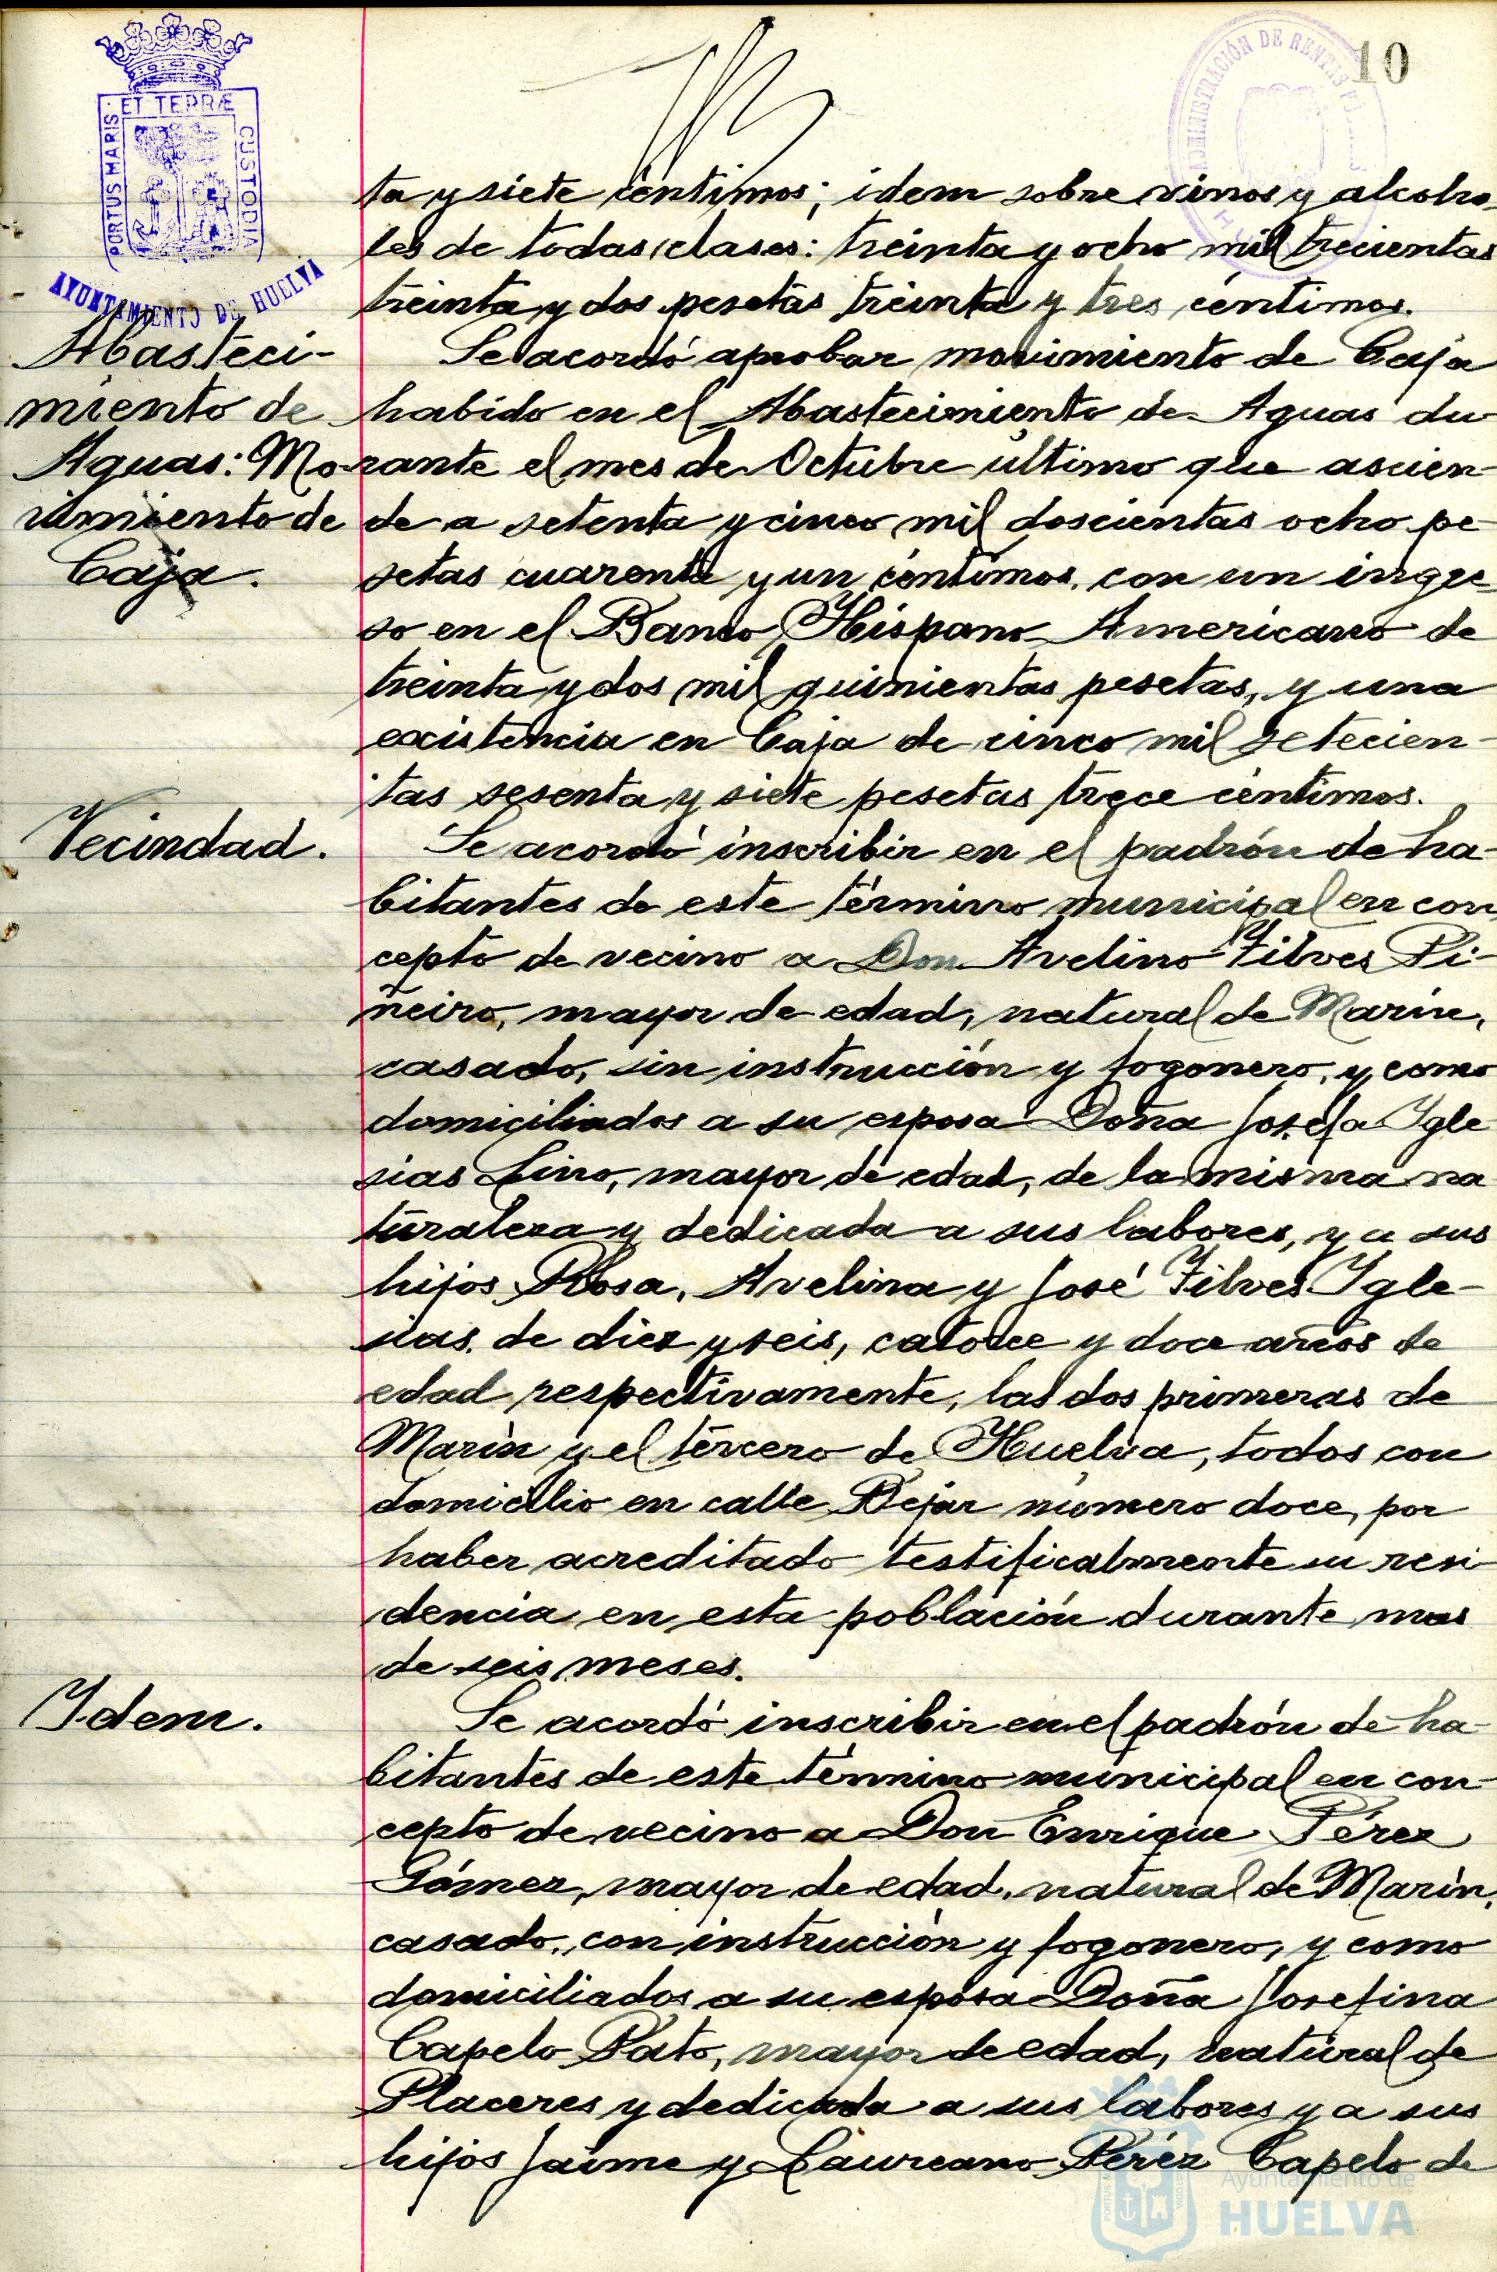 10
ET TERRÆ
PORTUS MARIS
CUSTODIA
AYUNTAMIENTO DE HUELVA
ADMINISTRACIÓN DE RENTAS
ta y siete céntimos; idem sobre vinos y alcoho-
les de todas clases: treinta y ocho mil trecientas
treinta y dos pesetas treinta y tres céntimos.
Abasteci-
miento de
Aguas: Mo-
vimiento de
Caja.
Se acordó aprobar movimiento de Caja
habido en el Abastecimiento de Aguas du-
rante el mes de Octubre último que ascien-
de a setenta y cinco mil doscientas ocho pe-
setas cuarenta y un céntimos, con un ingre-
so en el Banco Hispano Americano de
treinta y dos mil quinientas pesetas, y una
existencia en Caja de cinco mil setecien-
tas sesenta y siete pesetas trece céntimos.
Vecindad.
Se acordó inscribir en el padrón de ha-
bitantes de este término municipal en con-
cepto de vecino a Don Avelino Filves Pi-
ñeiro, mayor de edad, natural de Marín,
casado, sin instrucción y fogonero, y como
domiciliados a su esposa Doña Josefa Igle
sias Lino, mayor de edad, de la misma na
turaleza y dedicada a sus labores, y a sus
hijos Rosa, Avelina y José Filves Igle-
sias, de diez y seis, catorce y doce años de
edad respectivamente, las dos primeras de
Marín y el tercero de Huelva, todos con
domicilio en calle Bejar número doce, por
haber acreditado testificalmente su resi-
dencia en esta población durante mas
de seis meses.
Idem.
Se acordó inscribir en el padrón de ha-
bitantes de este término municipal en con-
cepto de vecino a Don Enrique Pérez
Gómez, mayor de edad, natural de Marín,
casado, con instrucción y fogonero, y como
domiciliados a su esposa Doña Josefina
Capelo Pato, mayor de edad, natural de
Placeres y dedicada a sus labores y a sus
hijos Jaime y Laureano Pérez Capelo de
Ayuntamiento de
HUELVA